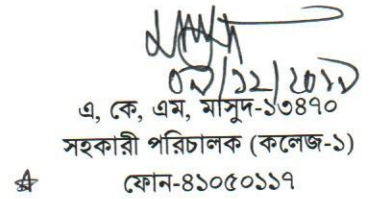 এ, কে, এম, মাসুদ-১৩৪৭০
সহকারী পরিচালক (কলেজ-১)
ফোন-৪১০৫০১১৭